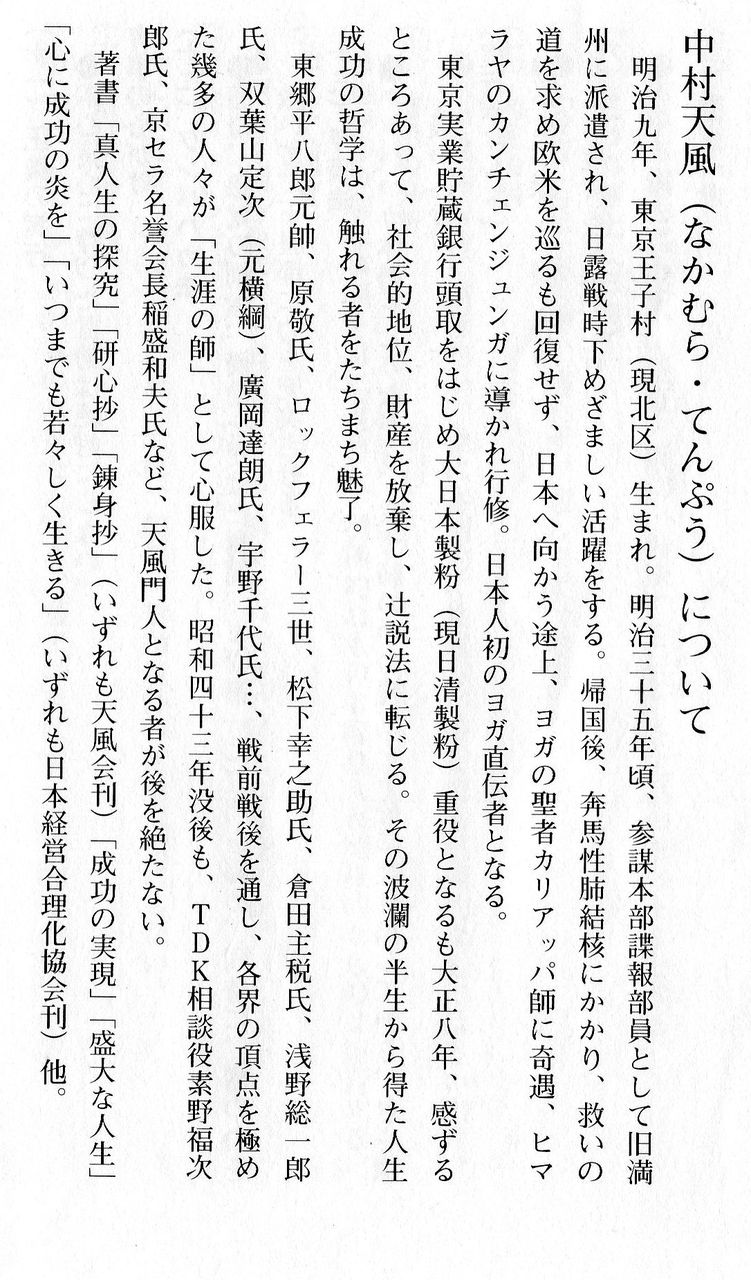 中村天風（なかむら・てんぷう）について
明治九年、東京王子村（現北区）生まれ。明治三十五年頃、参謀本部諜報部員として旧満
州に派遣され、日露戦時下めざましい活躍をする。帰国後、奔馬性肺結核にかかり、救いの
道を求め欧米を巡るも回復せず、日本へ向かう途上、ヨガの聖者カリアッパ師に奇遇、ヒマ
ラヤのカンチェンジュンガに導かれ行修。日本人初のヨガ直伝者となる。
東京実業貯蔵銀行頭取をはじめ大日本製粉（現日清製粉）重役となるも大正八年、感ずる
ところあって、社会的地位、財産を放棄し、辻説法に転じる。その波瀾の半生から得た人生
成功の哲学は、触れる者をたちまち魅了。
東郷平八郎元帥、原敬氏、ロックフェラー三世、松下幸之助氏、倉田主税氏、浅野総一郎
氏、双葉山定次（元横綱）、廣岡達朗氏、宇野千代氏…、戦前戦後を通し、各界の頂点を極め
た幾多の人々が「生涯の師」として心服した。昭和四十三年没後も、ＴＤＫ相談役素野福次
郎氏、京セラ名誉会長稲盛和夫氏など、天風門人となる者が後を絶たない。
著書「真人生の探究」「研心抄」「錬身抄」（いずれも天風会刊）「成功の実現」「盛大な人生」
「心に成功の炎を」「いつまでも若々しく生きる」（いずれも日本経営合理化協会刊）他。